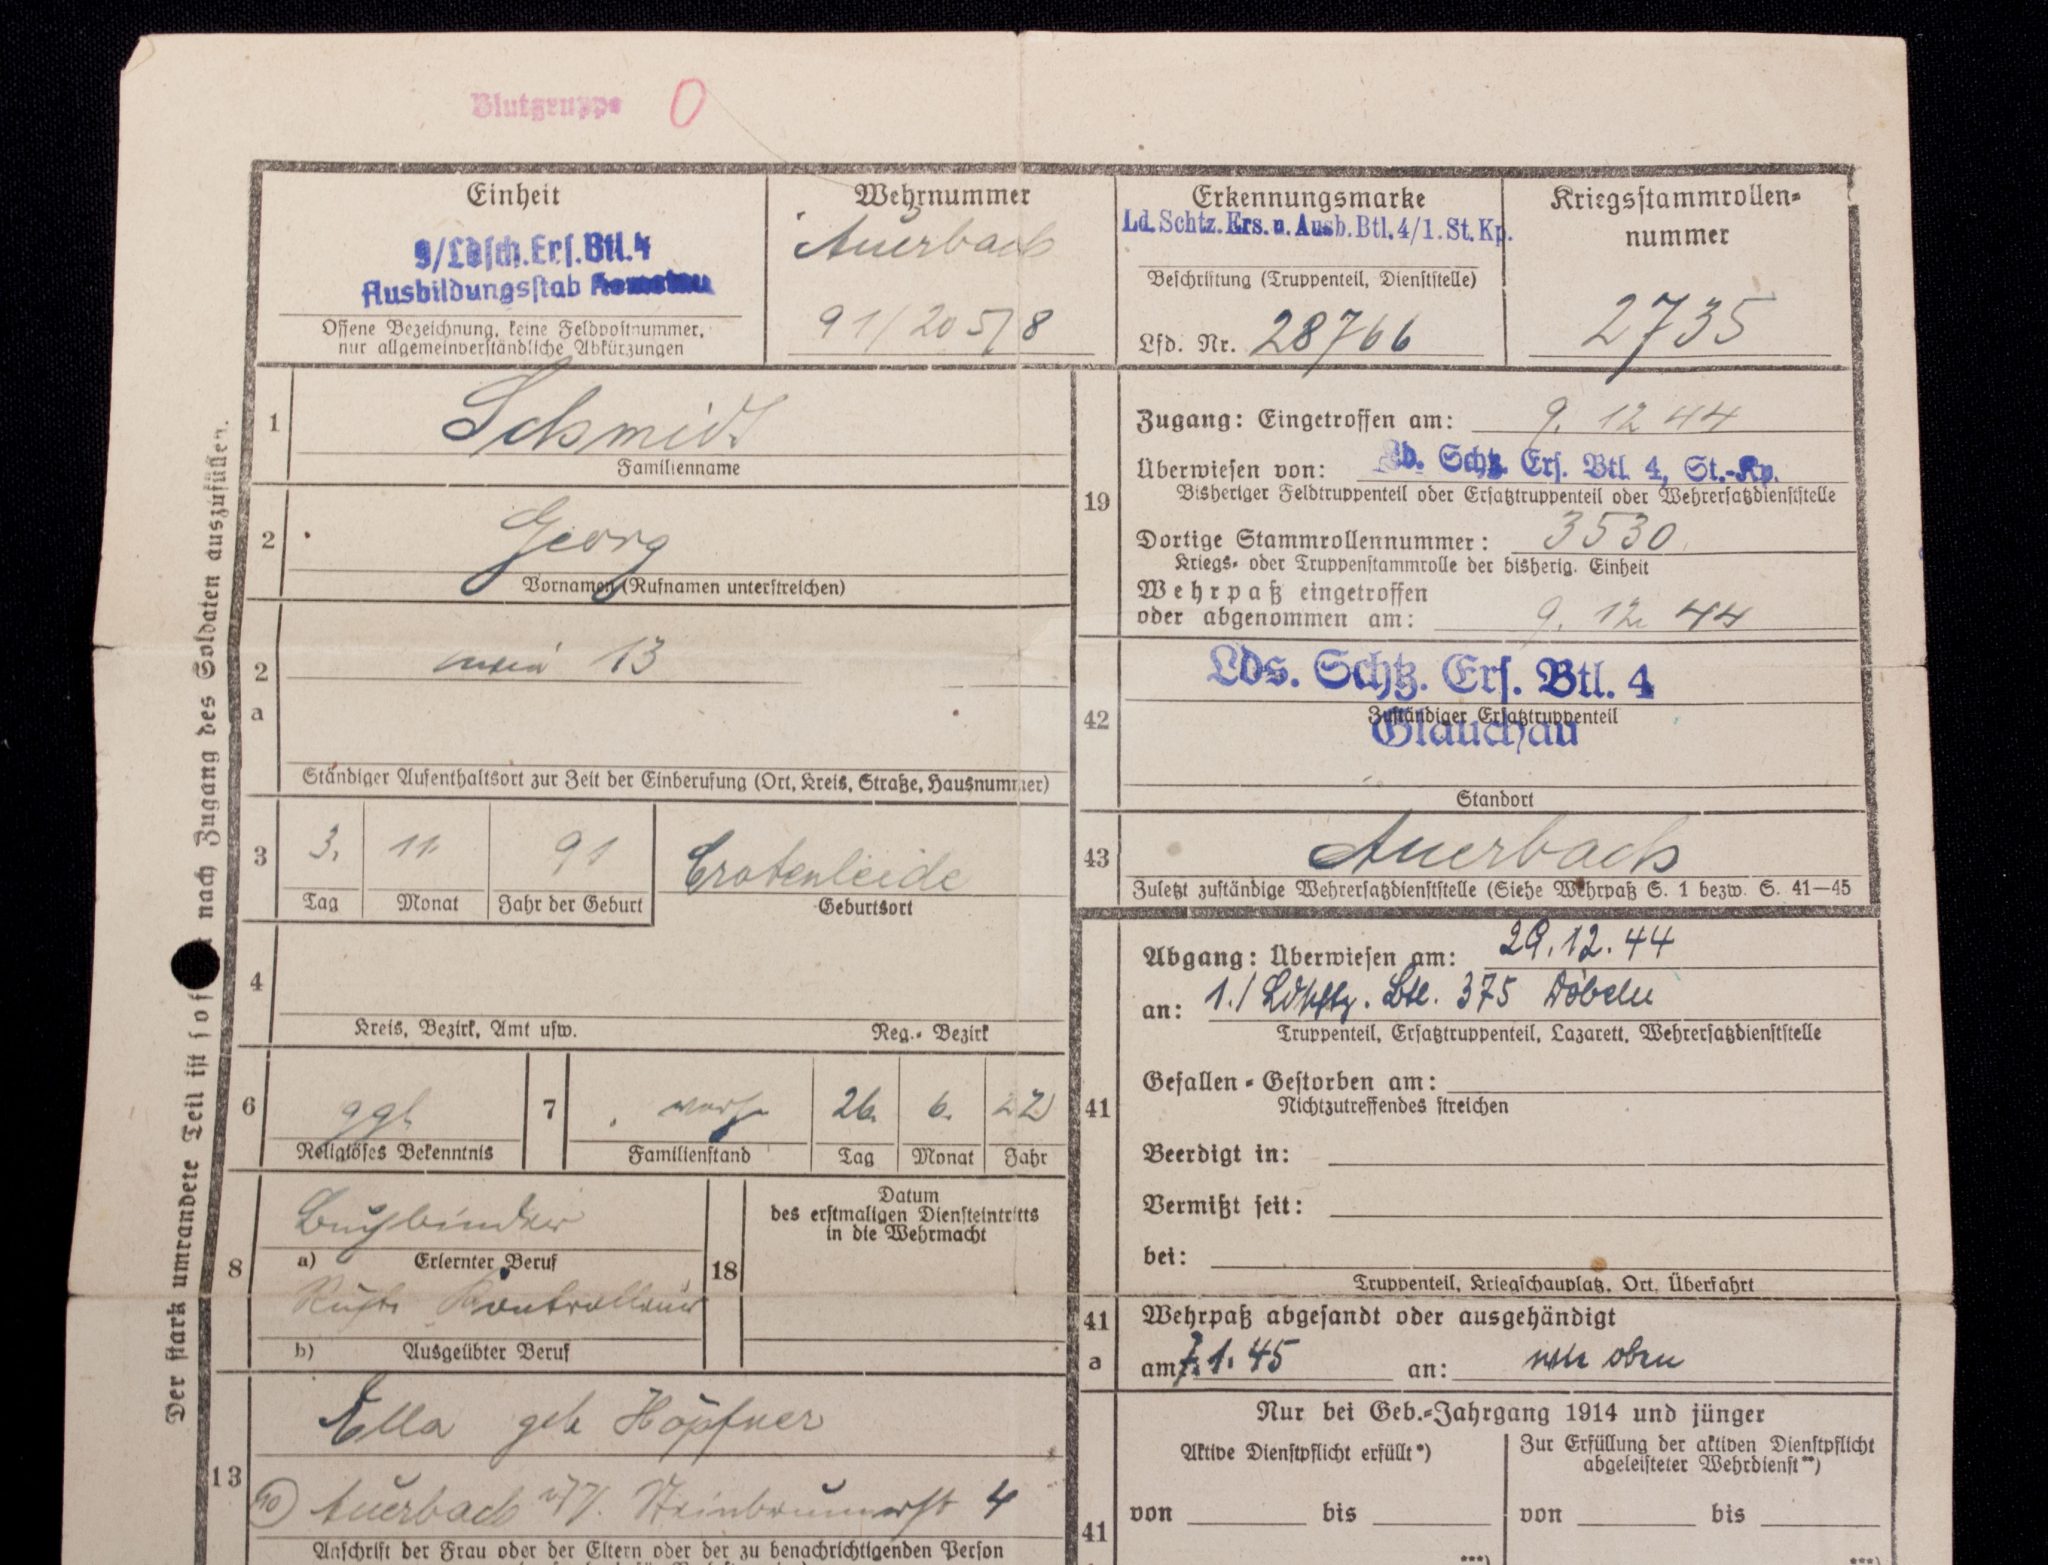 Blutgruppe O
Einheit
9/Ldsch.Ers.Btl.4
Ausbildungsstab
Offene Bezeichnung, keine Feldpostnummer,
nur allgemeinverständliche Abkürzungen
Wehrnummer
Auerbach
91/205/8
Erkennungsmarke
Ld.Schtz.Ers.u.Ausb.Btl.4/1.St.Kp.
Beschriftung (Truppenteil, Dienststelle)
Lfd. Nr. 28766
Kriegsstammrollen-
nummer
2735
Der stark umrandete Teil ist sof nach Zugang des Soldaten auszufüllen.
1
Schmidt
Familienname
2
Georg
Vornamen (Rufnamen unterstreichen)
2
a
13
Ständiger Aufenthaltsort zur Zeit der Einberufung (Ort, Kreis, Straße, Hausnummer)
3
3. 11. 91
Tag Monat Jahr der Geburt
Crotenleide
Geburtsort
4
Kreis, Bezirk, Amt usw. Reg.-Bezirk
6
ggl.
Religiöses Bekenntnis
7
verh.
Familienstand
26. 6. 22
Tag Monat Jahr
8
Buchbinder
a) Erlernter Beruf
Kontrolleur
b) Ausgeübter Beruf
18
Datum
des erstmaligen Diensteintritts
in die Wehrmacht
13
Ella geb Höpfner
Auerbach i/V. Steinbrunnerst 4
Anschrift der Frau oder der Eltern oder der zu benachrichtigenden Person
19
Zugang: Eingetroffen am: 9. 12 44
Überwiesen von: Ld. Schtz. Ers. Btl. 4, St.-Kp.
Bisheriger Feldtruppenteil oder Ersatztruppenteil oder Wehrersatzdienststelle
Dortige Stammrollennummer: 3530
Kriegs- oder Truppenstammrolle der bisherig. Einheit
Wehrpaß eingetroffen
oder abgenommen am: 9. 12. 44
42
Lds. Schtz. Ers. Btl. 4
Zuständiger Ersatztruppenteil
Glauchau
Standort
43
Auerbach
Zuletzt zuständige Wehrersatzdienststelle (Siehe Wehrpaß S. 1 bezw. S. 41—45
41
Abgang: Überwiesen am: 29.12.44
an: 1./ Ldschtz. Btl. 375 Döbeln
Truppenteil, Ersatztruppenteil, Lazarett, Wehrersatzdienststelle
Gefallen - Gestorben am:
Nichtzutreffendes streichen
Beerdigt in:
Vermißt seit:
bei:
Truppenteil, Kriegschauplatz, Ort, Überfahrt
41
a
Wehrpaß abgesandt oder ausgehändigt
am 7.1.45 an: wie oben
41
Nur bei Geb.-Jahrgang 1914 und jünger
Aktive Dienstpflicht erfüllt*)
von bis
Zur Erfüllung der aktiven Dienstpflicht
abgeleisteter Wehrdienst**)
von bis
***) ***)